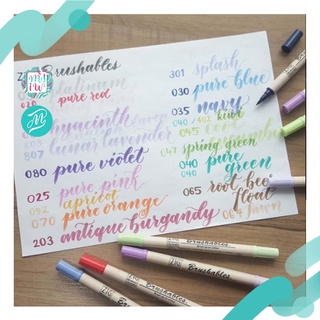 Brushables
platinum
020 pure red
hyacinth
lunar lavender
807
080 pure violet
025 pure pink
092 apricot
070 pure orange
203 antique burgandy
301 splash
030 pure blue
035 navy
040 / 402 kiwi
045
047 spring green
040 pure
040 green
065 root beer
float
064 fawn
Brushables
Brushables